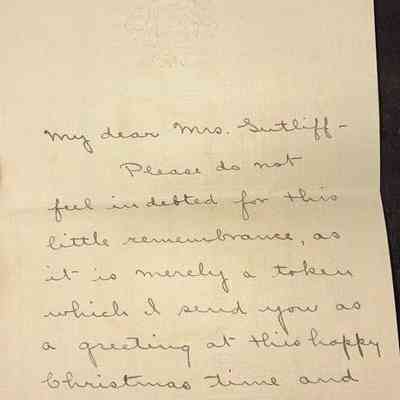 My dear Mrs. Sutliff -
Please do not
feel indebted for this
little remembrance, as
it is merely a token
which I send you as
a greeting at this happy
Christmas time and